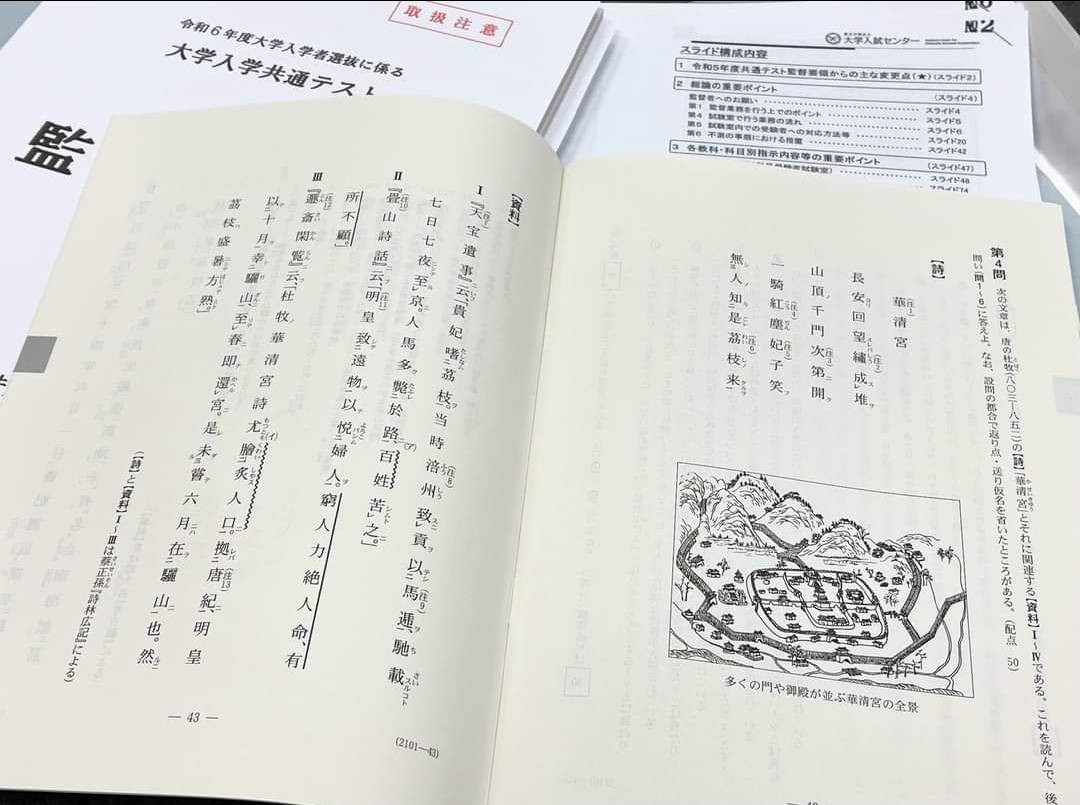 取扱注意
令和6年度大学入学者選抜に係る
大学入学共通テスト
監
№2
大学入試センター
スライド構成内容
1 令和5年度共通テスト監督要領からの主な変更点(★)(スライド2)
2 総論の重要ポイント (スライド4)
監督者へのお願い スライド4
第1 監督業務を行う上でのポイント スライド5
第4 試験室で行う業務の流れ スライド6
第5 試験室内での受験者への対応方法等 スライド20
第6 不測の事態における措置 スライド42
3 各教科・科目別指示内容等の重要ポイント (スライド47)
スライド48
スライド74
第4問 次の文章は、唐の杜牧(八〇三―八五二)の【詩】「華清宮」とそれに関連する【資料】Ⅰ～Ⅳである。これを読んで、後
問い(問1～6)に答えよ。なお、設問の都合で返り点・送り仮名を省いたところがある。(配点 50)
【詩】
華清宮
長安回望繡成堆
山頂千門次第開
一騎紅塵妃子笑
無人知是荔枝来
多くの門や御殿が並ぶ華清宮の全景
【資料】
Ⅰ 『天宝遺事』云、「貴妃嗜荔枝。当時涪州致貢以馬逓、馳載
七日七夜至京。人馬多斃於路、百姓苦之。」
Ⅱ 『畳山詩話』云、「明皇致遠物以悦婦人。窮人力絶人命、有
所不顧。」
Ⅲ 『遯斎閑覧』云、「杜牧華清宮詩尤膾炙人口。拠唐紀、明皇
以十月幸驪山、至春即還宮。是未嘗六月在驪山也。然
荔枝盛暑方熟。」
(【詩】と【資料】Ⅰ～Ⅲは蔡正孫『詩林広記』による)
― 43 ―
(2101―43)